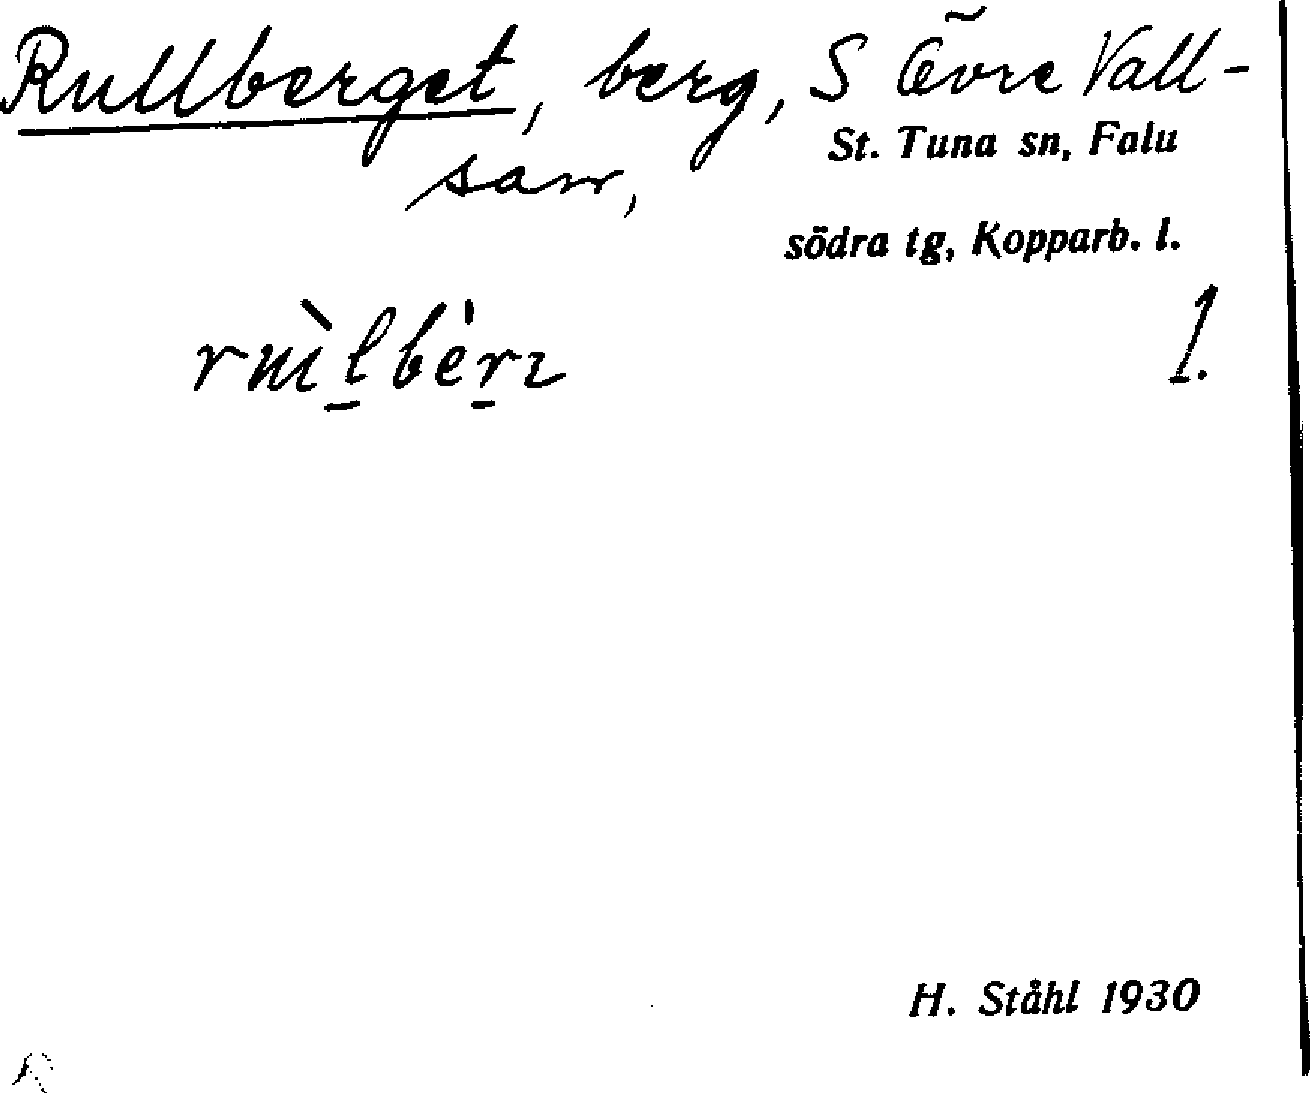 Rullberget, berg, S Övre Vall-
sarv,
St. Tuna sn, Falu
södra tg, Kopparb. l.
1.
H. Ståhl 1930